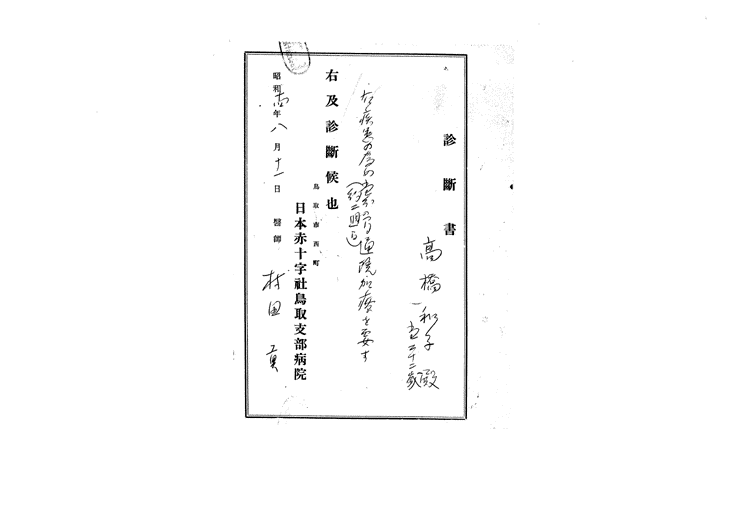 診斷書
高橋和子殿
二十二歲
右疾患の為め
通院加療を要す
右及診斷候也
鳥取市西町
日本赤十字社鳥取支部病院
昭和 年八月十一日 醫師 村田 真